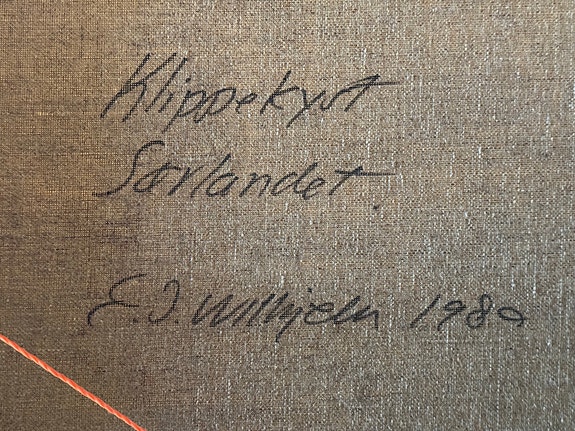 Klippekyst
Sørlandet
E.J. Willhjelm 1980